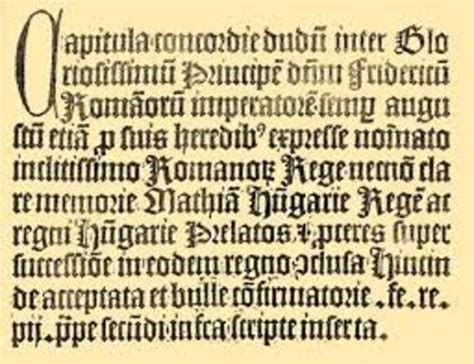 Capitula concordie dudū inter Glo
riosissimū Principē dñm Fridericū
Romāorū imperatorē semꝑ augu
stū etiā ꝓ suis heredibꝰ expresse noīato
inclitissimo Romanoꝝ Rege necnō cla
re memorie Mathiā Hūgarie Regē ac
regni Hūgarie Prelatos ⁊ ꝓceres super
successiōe in eodem regno ↄclusa Hincin
de acceptata et bulle cōfirmatorie . fe . re .
pij . ꝓpe secūdi infra scripte inserta .